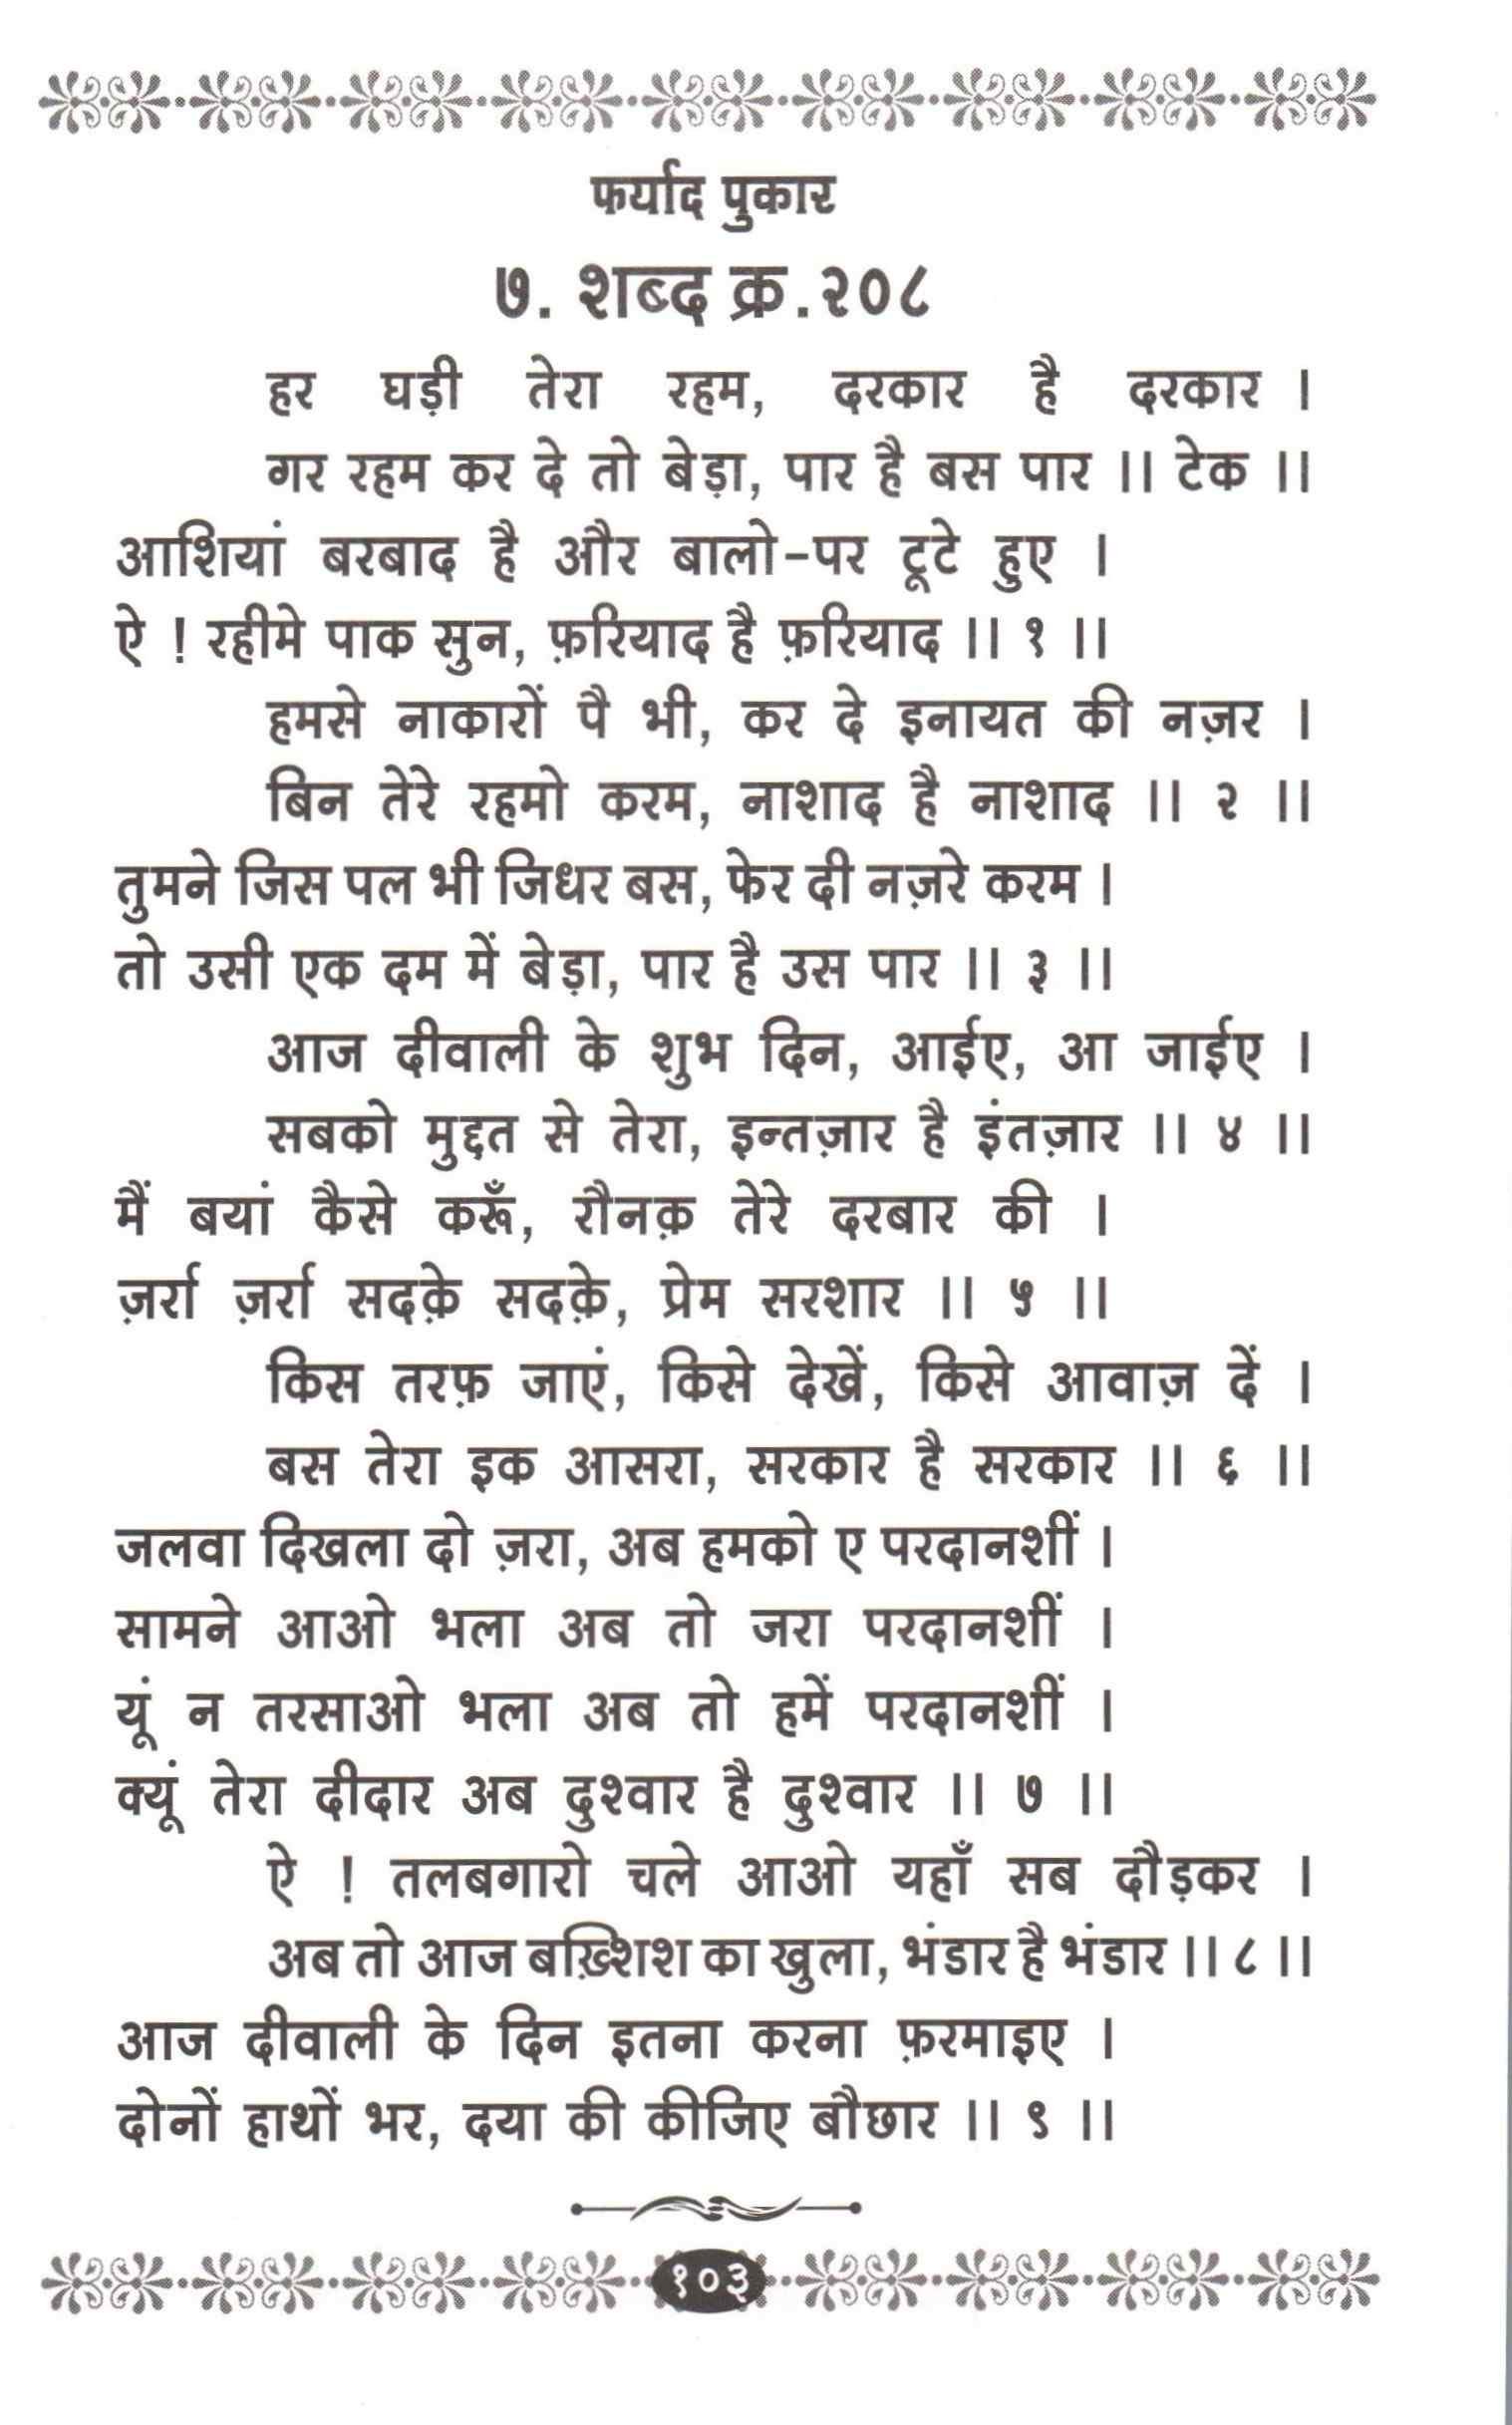 फर्याद पुकार
७. शब्द क्र.२०८
हर घड़ी तेरा रहम, दरकार है दरकार ।
गर रहम कर दे तो बेड़ा, पार है बस पार ।। टेक ।।
आशियां बरबाद है और बालो-पर टूटे हुए ।
ऐ ! रहीमे पाक सुन, फ़रियाद है फ़रियाद ।। १ ।।
हमसे नाकारों पै भी, कर दे इनायत की नज़र ।
बिन तेरे रहमो करम, नाशाद है नाशाद ।। २ ।।
तुमने जिस पल भी जिधर बस, फेर दी नज़रे करम ।
तो उसी एक दम में बेड़ा, पार है उस पार ।। ३ ।।
आज दीवाली के शुभ दिन, आईए, आ जाईए ।
सबको मुद्दत से तेरा, इन्तज़ार है इंतज़ार ।। ४ ।।
मैं बयां कैसे करूँ, रौनक़ तेरे दरबार की ।
ज़र्रा ज़र्रा सदक़े सदक़े, प्रेम सरशार ।। ५ ।।
किस तरफ़ जाएं, किसे देखें, किसे आवाज़ दें ।
बस तेरा इक आसरा, सरकार है सरकार ।। ६ ।।
जलवा दिखला दो ज़रा, अब हमको ए परदानशीं ।
सामने आओ भला अब तो जरा परदानशीं ।
यूं न तरसाओ भला अब तो हमें परदानशीं ।
क्यूं तेरा दीदार अब दुश्वार है दुश्वार ।। ७ ।।
ऐ ! तलबगारो चले आओ यहाँ सब दौड़कर ।
अब तो आज बख़्शिश का खुला, भंडार है भंडार ।। ८ ।।
आज दीवाली के दिन इतना करना फ़रमाइए ।
दोनों हाथों भर, दया की कीजिए बौछार ।। ९ ।।
१०३